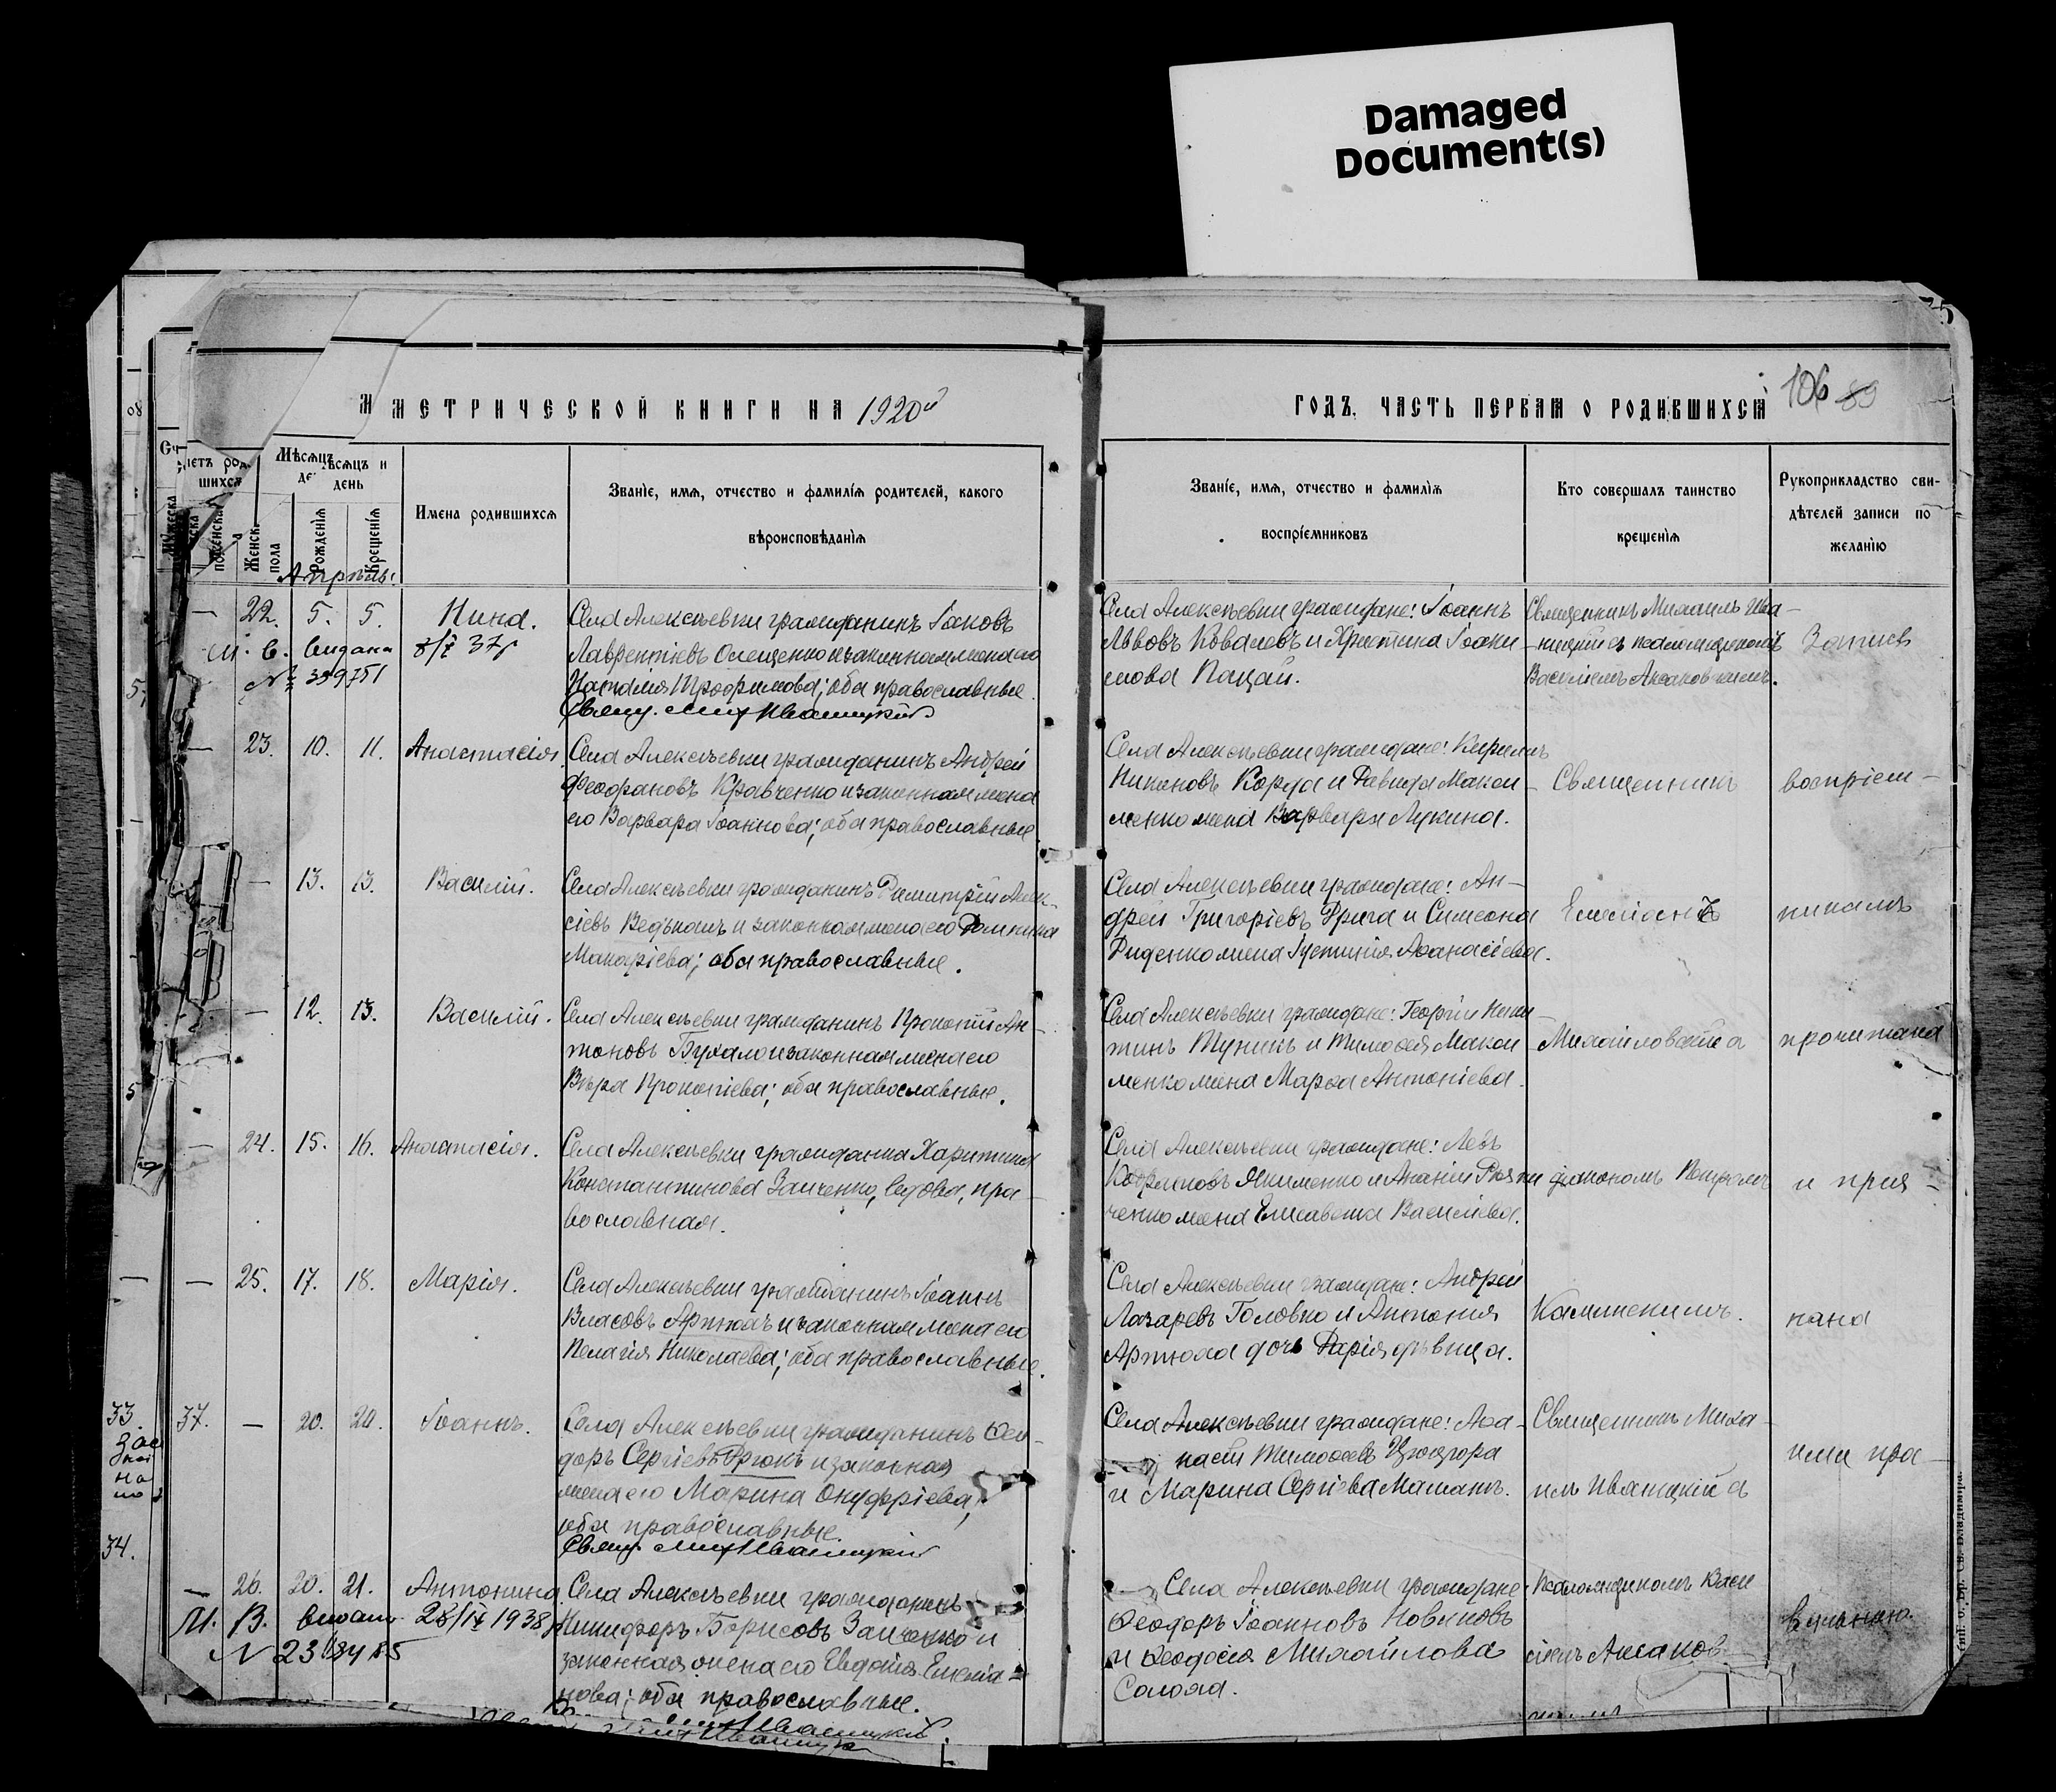 Damaged
Document(s)
МЕТРИЧЕСКОЙ КНИГИ НА 1920й
ГОДЪ, ЧАСТЬ ПЕРВАЯ О РОДИВШИХСЯ
106 89
Мѣсяцъ и день
Женск. пола
Рожденія
Крещенія
Имена родившихся
Званіе, имя, отчество и фамилія родителей, какого
вѣроисповѣданія
Званіе, имя, отчество и фамилія
воспріемниковъ
Кто совершалъ таинство
крещенія
Рукоприкладство сви-
дѣтелей записи по
желанію
Апрѣль:
— 22. 5. 5. Нина.
Села Алексѣевки гражданинъ Іаковъ
Лаврентіевъ Олещенко и законная жена его
Наталія Трофимова; оба православные.
Свящ. Мих Иваницкій
М. В. Видана 8/X 37 г
№ 399751
Села Алексѣевки граждане: Іоаннъ
Львовъ Ковалевъ и Христина Іоаки-
мова Кацай.
Священникъ Михаилъ Ива-
ницкій съ псаломщикомъ
Василіемъ Аксаковскимъ.
Запись
— 23. 10. 11. Анастасія.
Села Алексѣевки гражданинъ Андрей
Феофановъ Кравченко и законная жена
его Варвара Іоаннова; оба православные
Села Алексѣевки граждане: Кириллъ
Никоновъ Коржа и Давида Макси-
менко жена Варвара Лукина.
Священникъ
воспріем-
— 13. 13. Василій.
Села Алексѣевки гражданинъ Димитрій Алек-
сіевъ Ведькалъ и законная жена его Домникія
Макаріева; оба православные.
Села Алексѣевки граждане: Ан-
дрей Григоріевъ Дрига и Симеона
Диденко жена Іустинія Аѳанасіева.
Емеліанъ
никамъ
— 12. 13. Василій.
Села Алексѣевки гражданинъ Прокопій Ан-
тоновъ Бухало и законная жена его
Вѣра Прокопіева; оба православные.
Села Алексѣевки граждане: Георгій Ники-
тинъ Туникъ и Тимоѳея Макси
менко жена Марѳа Антоніева.
Михайловскій съ
прочитана
— 24. 15. 16. Анастасія.
Села Алексѣевки гражданка Харитина
Константинова Заиченко, вдова, пра-
вославная.
Села Алексѣевки граждане: Левъ
Якименко и Ананіи
ченко жена Елисавета Василіева.
діакономъ Петромъ
иприз-
— — 25. 17. 18. Марія.
Села Алексѣевки гражданинъ Іоаннъ
Власовъ Артюхъ и законная жена его
Пелагія Николаева; оба православные.
Села Алексѣевки граждане: Андрей
Лазаревъ Головко и Антонія
Артюха дочь Дарія дѣвица.
Каминскимъ.
нана
33. 37. — 20. 20. Іоаннъ.
Села Алексѣевки гражданинъ Ѳео-
доръ Сергіевъ Дрюкъ и законная
жена его Марина Онуфріева;
оба православные.
Свящ. Мих Иваницкій
Села Алексѣевки граждане: Аѳа-
насій Тимоѳеевъ Цюцюра
и Марина Сергіева Машанъ.
Священникъ Миха-
илъ Иваницкій съ
ими пра-
34.
— 26. 20. 21. Антонина.
Села Алексѣевки гражданинъ
Никифоръ Борисовъ Заиченко и
законная жена его Евдокія Емеліа-
нова; оба православные.
М. В. видано 28/IX 1938
Села Алексѣевки граждане:
Ѳеодоръ Іоанновъ Новиковъ
и Ѳеодосія Михайлова
Солоха.
Псаломщикомъ Васи
ліемъ Аксаков-
вильною.